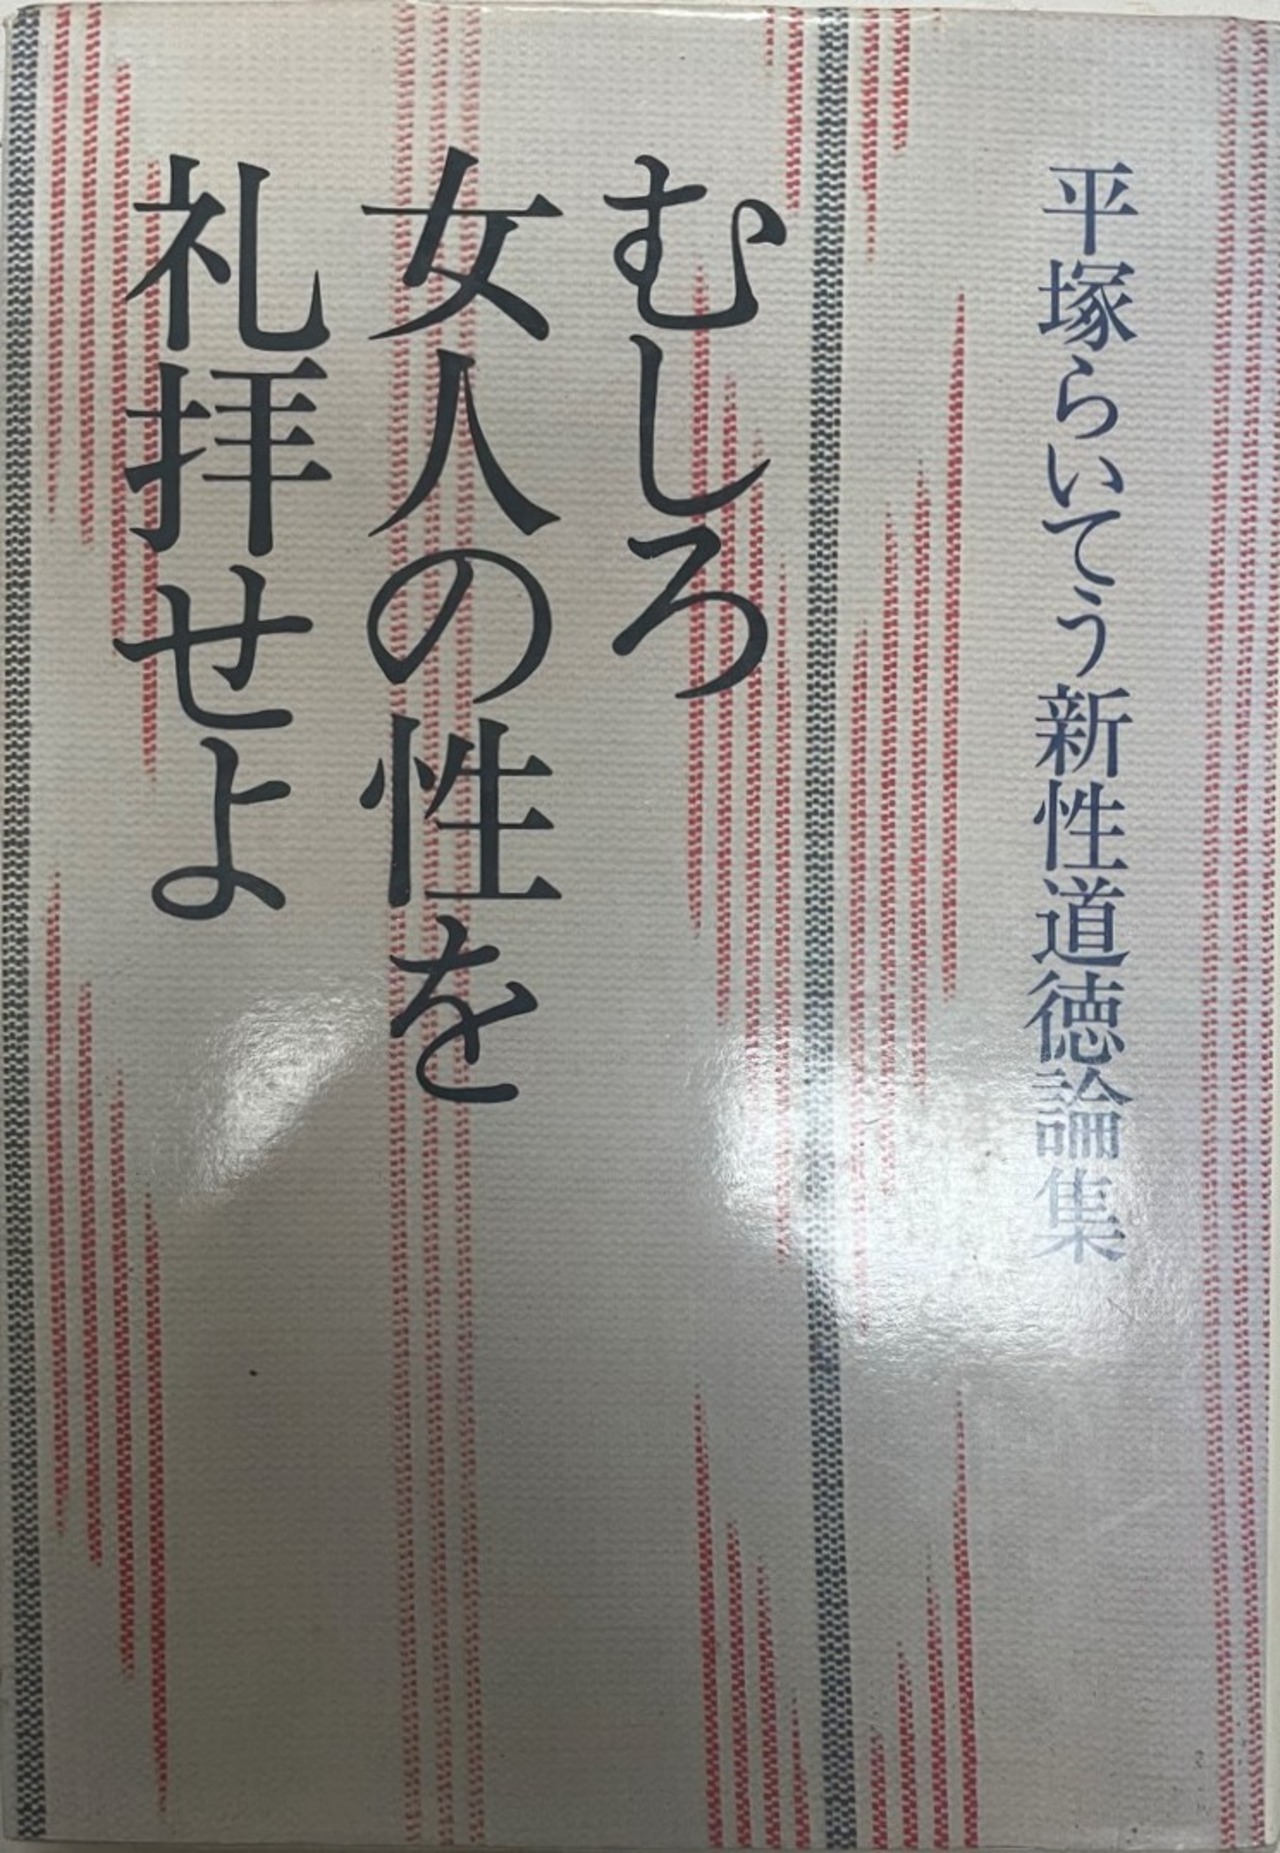 平塚らいてう新性道徳論集
むしろ
女人の性を
礼拝せよ